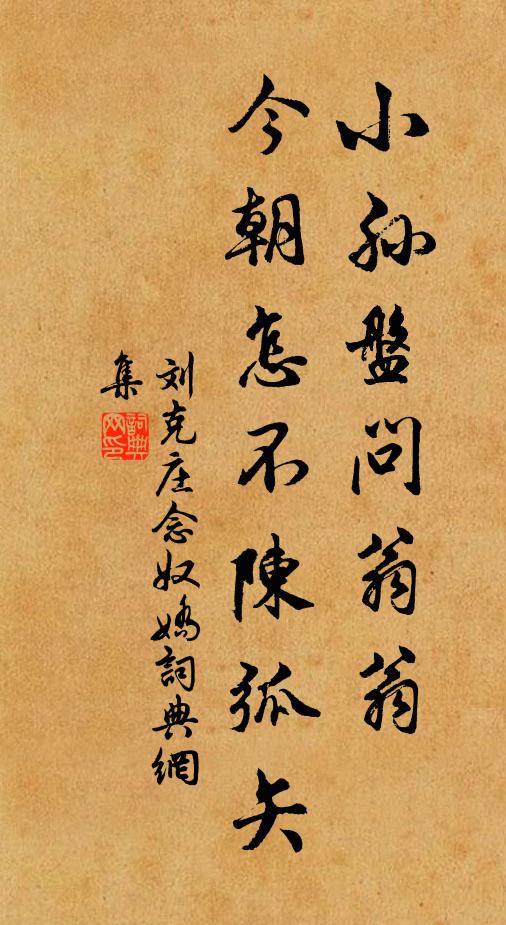 小孙盤问翁翁
今朝怎不陳弧矢
刘克庄念奴嬌詞典網
集
詞典
网印